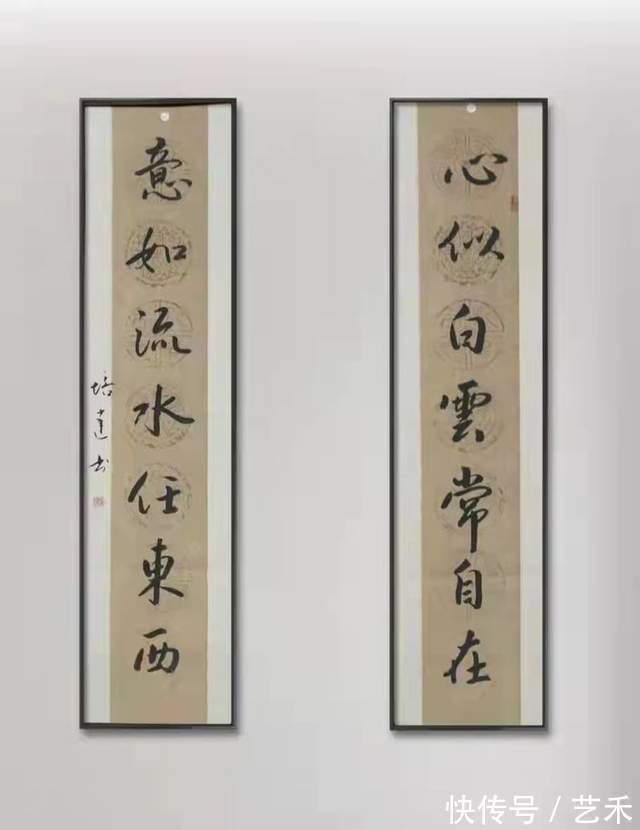 心似白雲常自在
意如流水任東西
培達书
快传号／艺禾